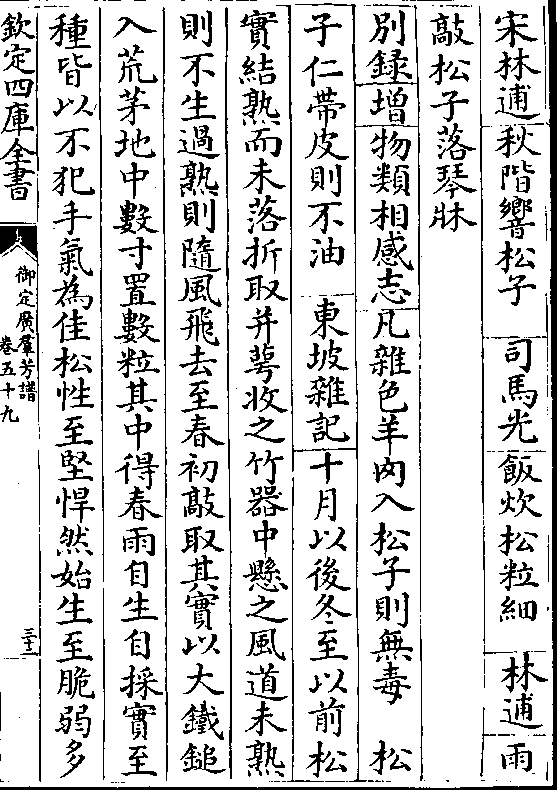 宋林逋秋階響松子　司馬光飯炊松粒細　林逋雨
敲松子落琴牀
別録增物類相感志凡雜色羊肉入松子則無毒　松
子仁帶皮則不油　東坡雜記十月以後冬至以前松
實結熟而未落折取并萼收之竹器中懸之風道未熟
則不生過熟則隨風飛去至春初敲取其實以大鐵鎚
入荒茅地中數寸置數粒其中得春雨自生自採實至
種皆以不犯手氣為佳松性至堅悍然始生至脆弱多
欽定四庫全書
御定廣羣芳譜
卷五十九
三十二